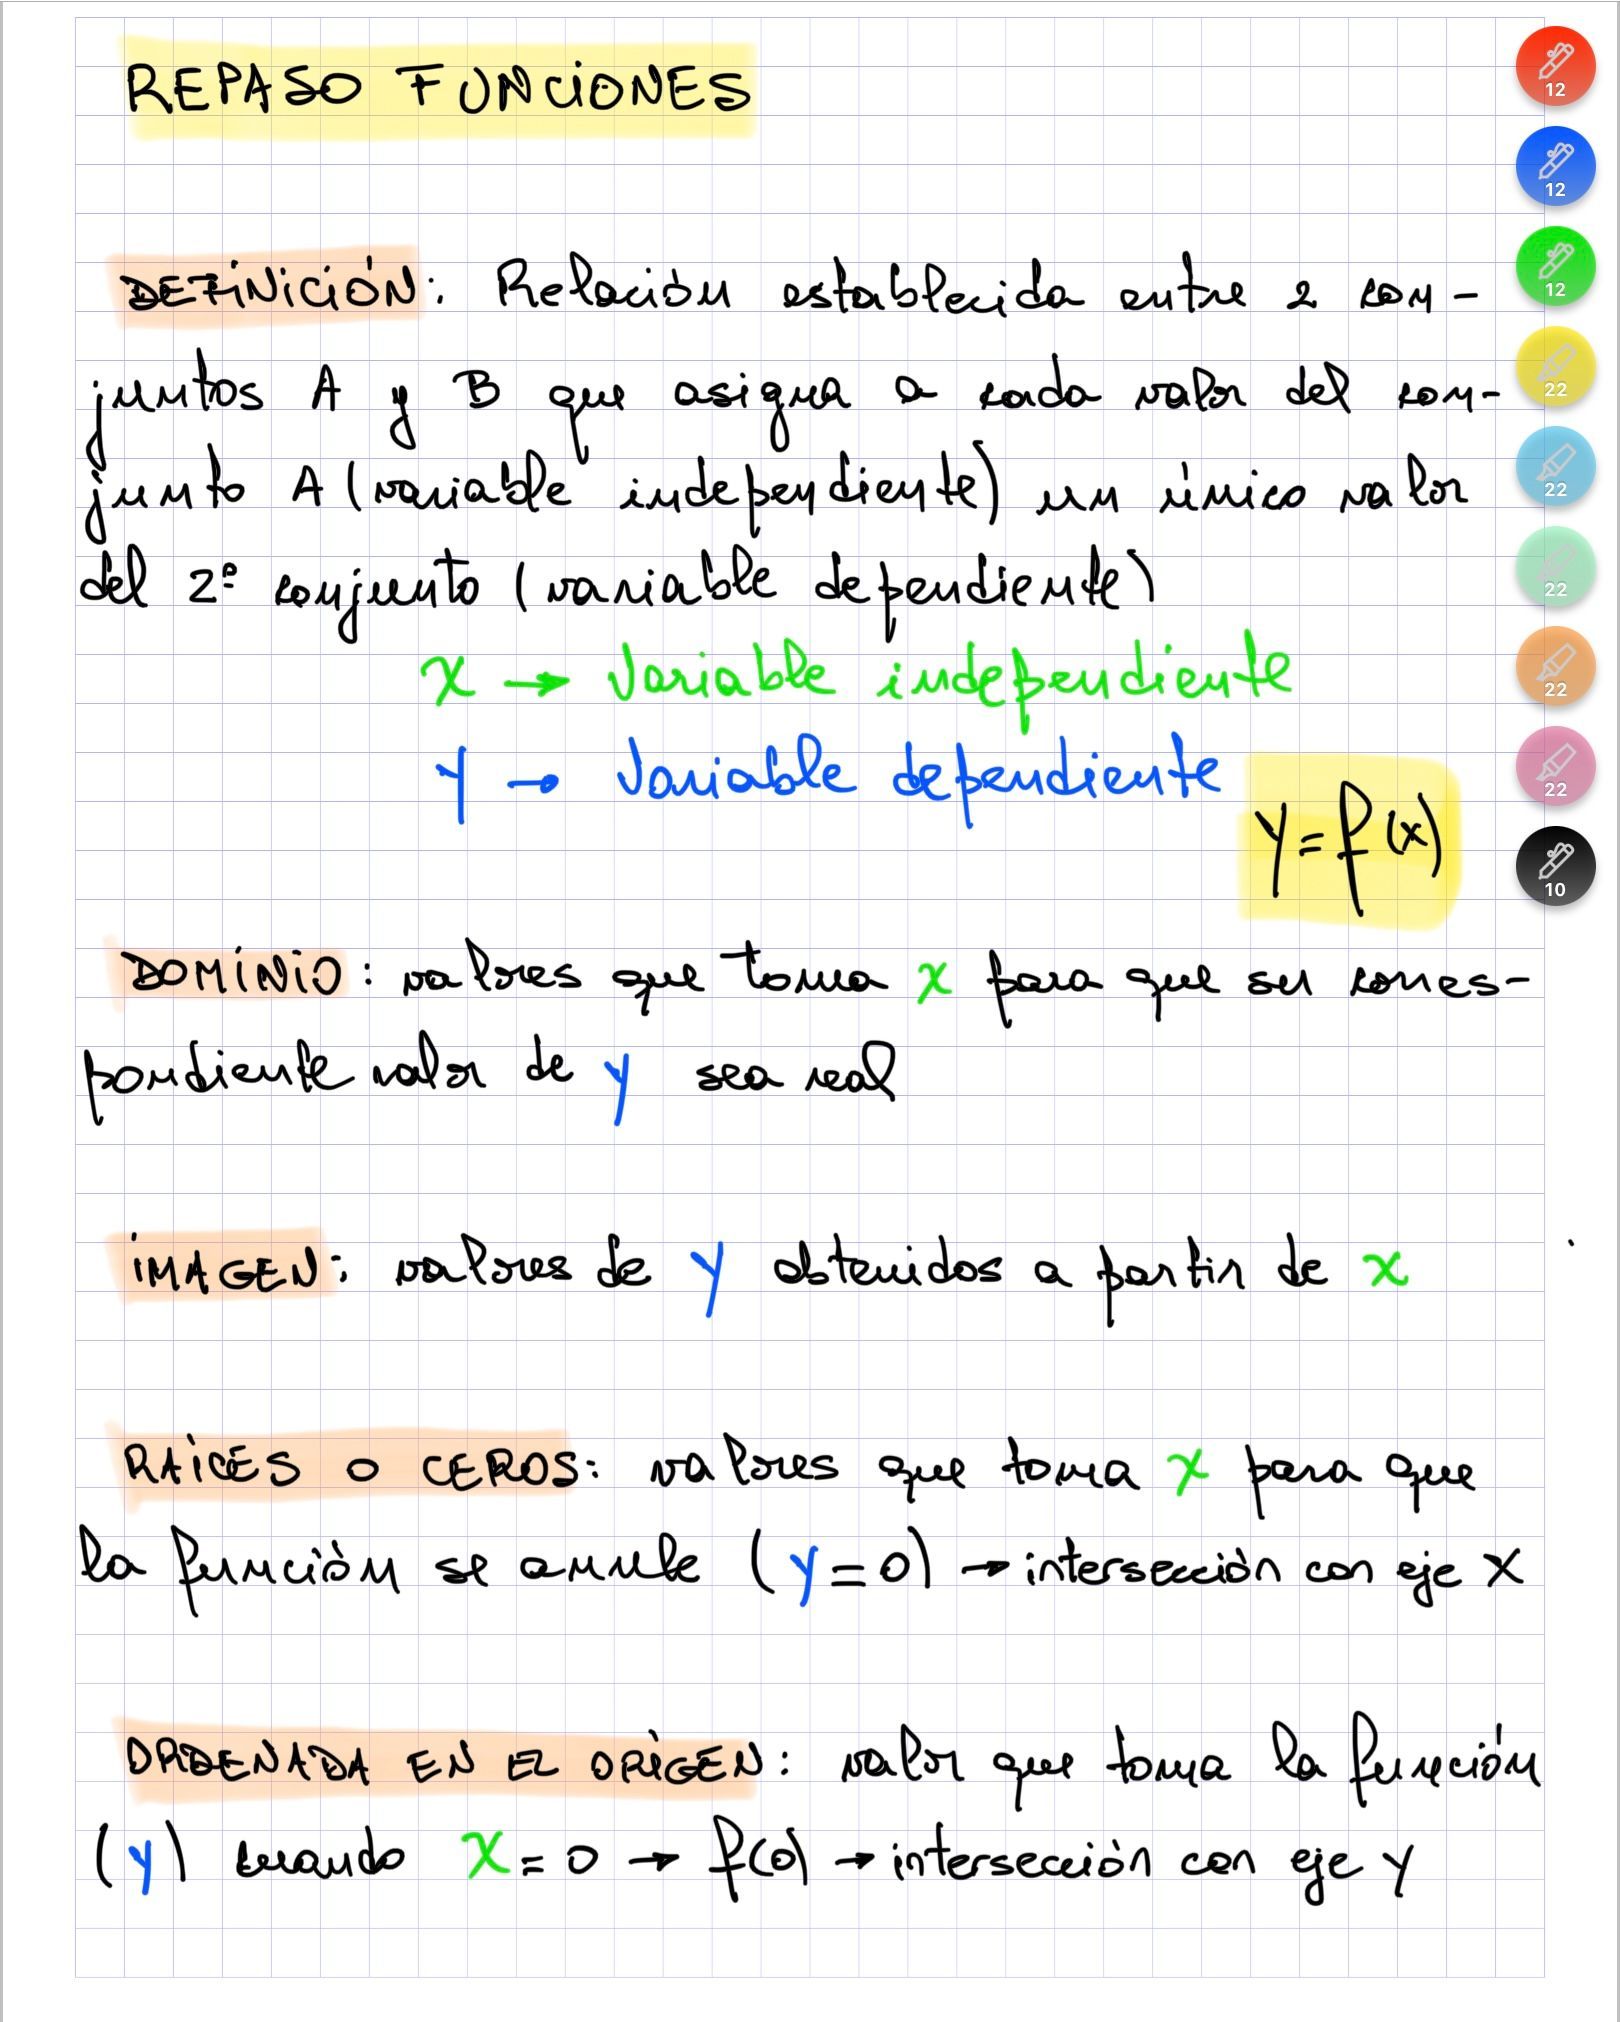 REPASO FUNCIONES
12
12
DEFINICIÓN: Relación establecida entre 2 con-
12
juntos A y B que asigna a cada valor del con-
22
junto A (variable independiente) un único valor
22
del 2º conjunto (variable dependiente)
22
x → Variable independiente
22
y → Variable dependiente
22
y = f(x)
10
DOMINIO: valores que toma x para que su corres-
pondiente valor de y sea real
IMAGEN: valores de y obtenidos a partir de x
RAÍCES O CEROS: valores que toma x para que
la función se anule (y=0) → intersección con eje X
ORDENADA EN EL ORIGEN: valor que toma la función
(y) cuando x=0 → f(0) → intersección con eje Y